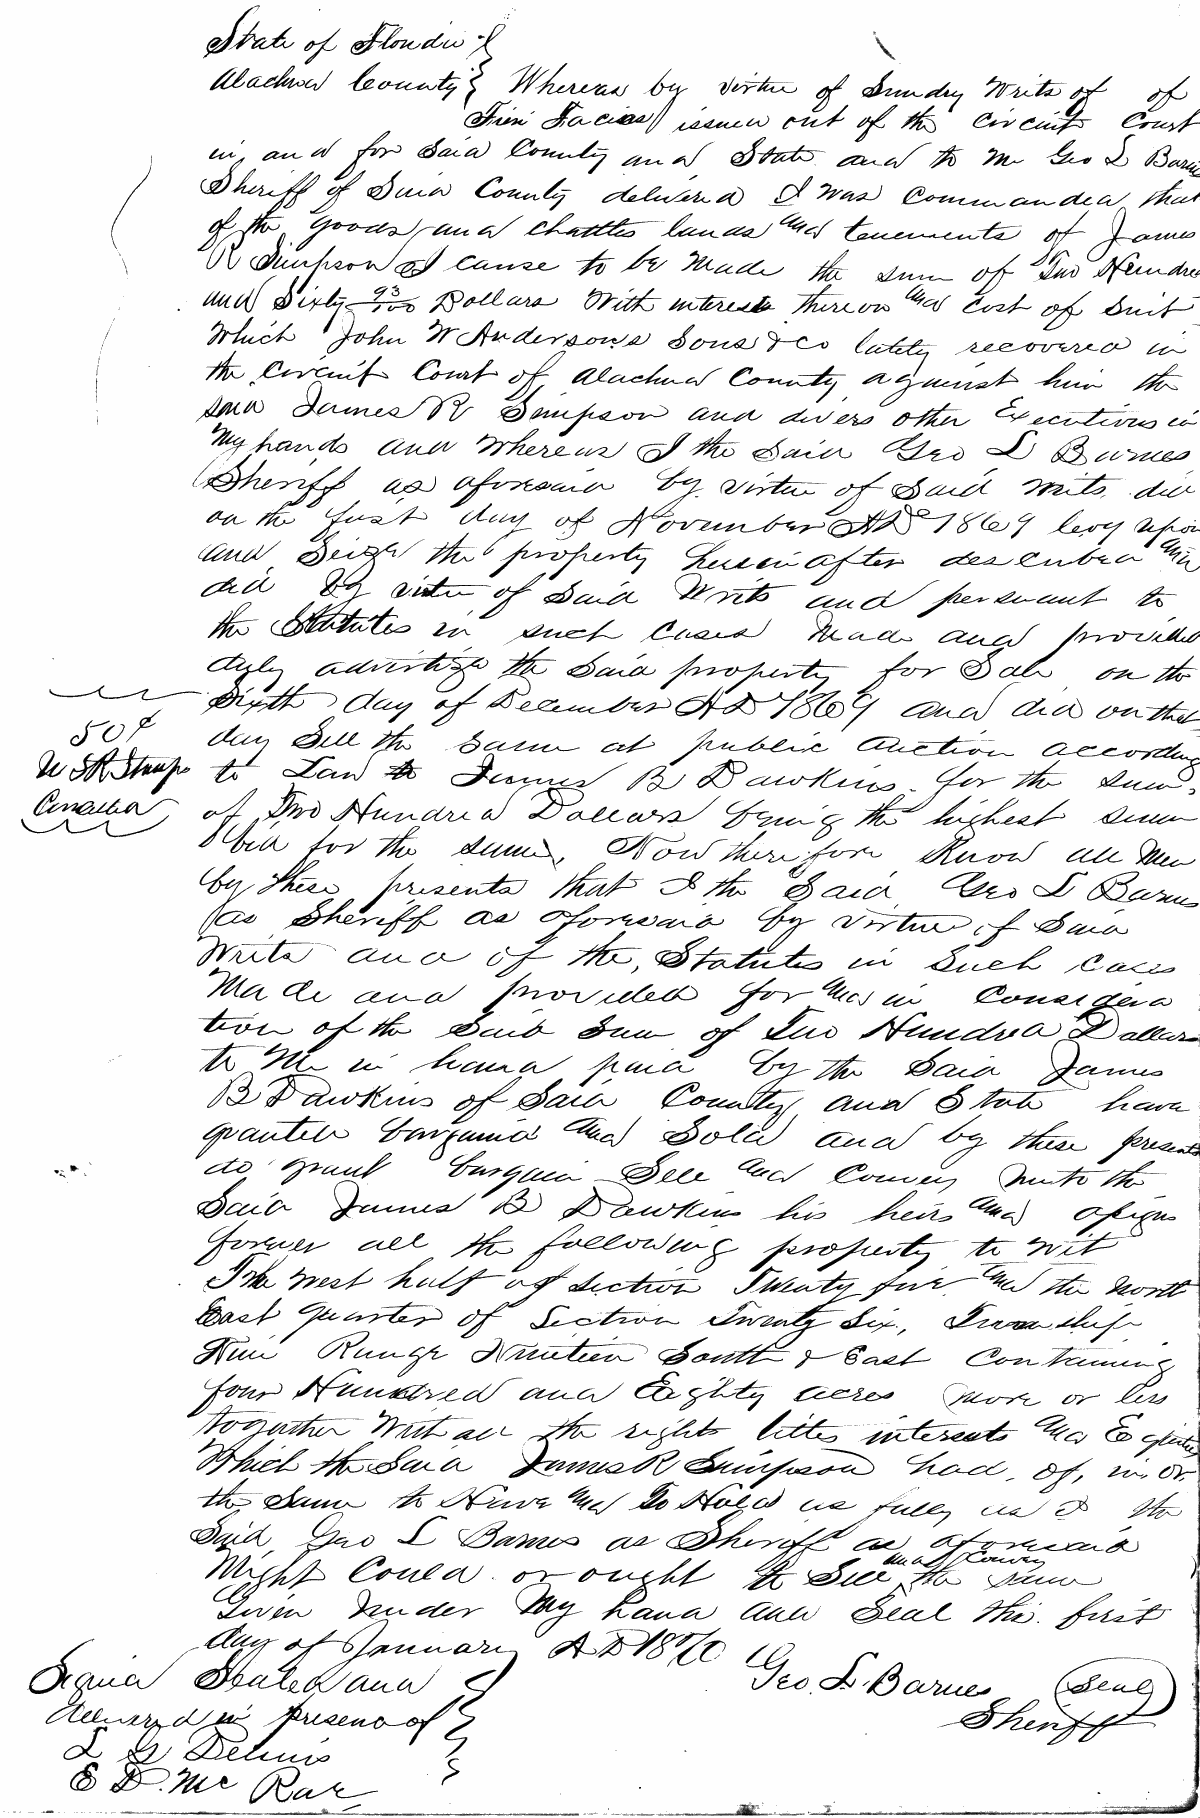 State of Florida }
Alachua County } Whereas by virtue of Sundry Writs of of
Fieri Facias issued out of the Circuit Court
in and for Said County and State and to me Geo L Barnes
Sheriff of Said County delivered I was Commanded that
of the goods and chattles lands and tenements of James
R Simpson I cause to be Made the sum of Two Hundred
and Sixty 93/100 Dollars With interest thereon and cost of Suit
Which John W Andersons Sons & co lately recovered in
the Circuit Court of Alachua County against him the
said James R Simpson and divers other Executions in
My hands and Whereas I the Said Geo L Barnes
Sheriff as aforesaid by virtue of Said Writs did
on the first day of November AD 1869 levy upon
and Seize the property hereinafter described and
did by virtue of Said Writs and persuant to
the Statutes in such Cases Made and provided
duly advertize the Said property for Sale on the
Sixth day of December AD 1869 and did on that
day Sell the Same at public Auction according
50¢
U S R Stamp
Cancelled
to Law to James B Dawkins for the sum
of Two Hundred Dollars being the highest sum
bid for the same, Now therefore Know all Men
by these presents that I the Said Geo L Barnes
as Sheriff as aforesaid by virtue of Said
Writs and of the Statutes in Such Cases
Made and provided for and in Considera
tion of the Said Sum of Two Hundred Dollars
to Me in hand paid by the Said James
B Dawkins of Said County and State have
granted bargained and Sold and by these presents
do grant bargain Sell and Convey unto the
Said James B Dawkins his heirs and assigns
forever all the following property to wit
The West half of Section Twenty five and the North
East quarter of Section Twenty Six, Township
Nine Range Nineteen South & East Containing
four Hundred and Eighty acres more or less
together with all the rights titles interests and Equities
Which the Said James R Simpson had, of, in, or
the Same to Have and To Hold as fully as I the
Said Geo L Barnes as Sheriff as aforesaid
Might Could or ought to Sell and Convey the same
Given Under My hand and Seal this first
day of January AD 1870
Geo. L. Barnes (Seal)
Sheriff
Signed Sealed and
delivered in presence of
E D. Mc Rae